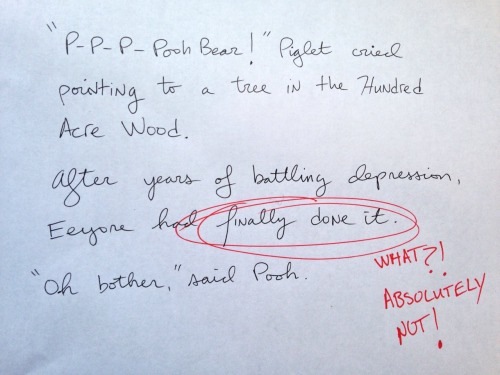 "P-P-P-Pooh Bear!" Piglet cried
pointing to a tree in the Hundred
Acre Wood.
After years of battling depression,
Eeyore had finally done it.
"Oh bother," said Pooh.
WHAT?!
ABSOLUTELY
NOT!